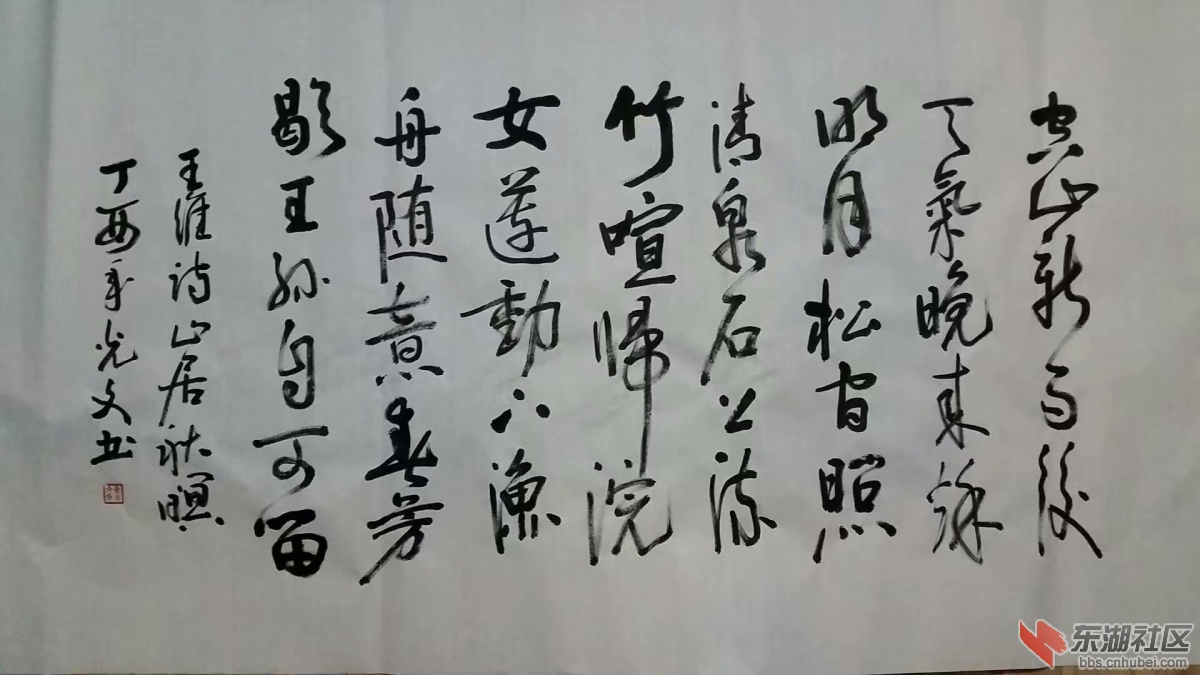 空山新雨後
天氣晚来秋
明月松间照
清泉石上流
竹喧歸浣
女蓮動下漁
舟随意春芳
歇王孫自可留
王維诗山居秋暝
丁酉年光文书
东湖社区
bbs.cnhubei.com